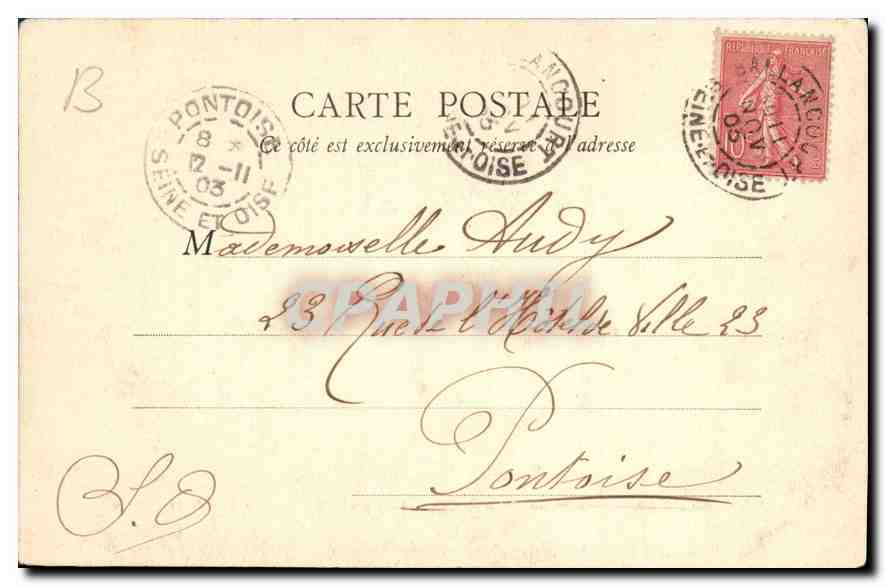 B
CARTE POSTALE
Ce côté est exclusivement réservé à l'adresse
PONTOISE
8 *
12 -11
03
SEINE ET OISE
LANCOURT
ET-OISE
REPUBLIQUE FRANÇAISE
BALLANCOURT
11
NOV
03
SEINE-ET-OISE
10
Mademoiselle Audy
23 Rue de l'Hôtel de Ville 23
Pontoise
S.O
CPAPHIL